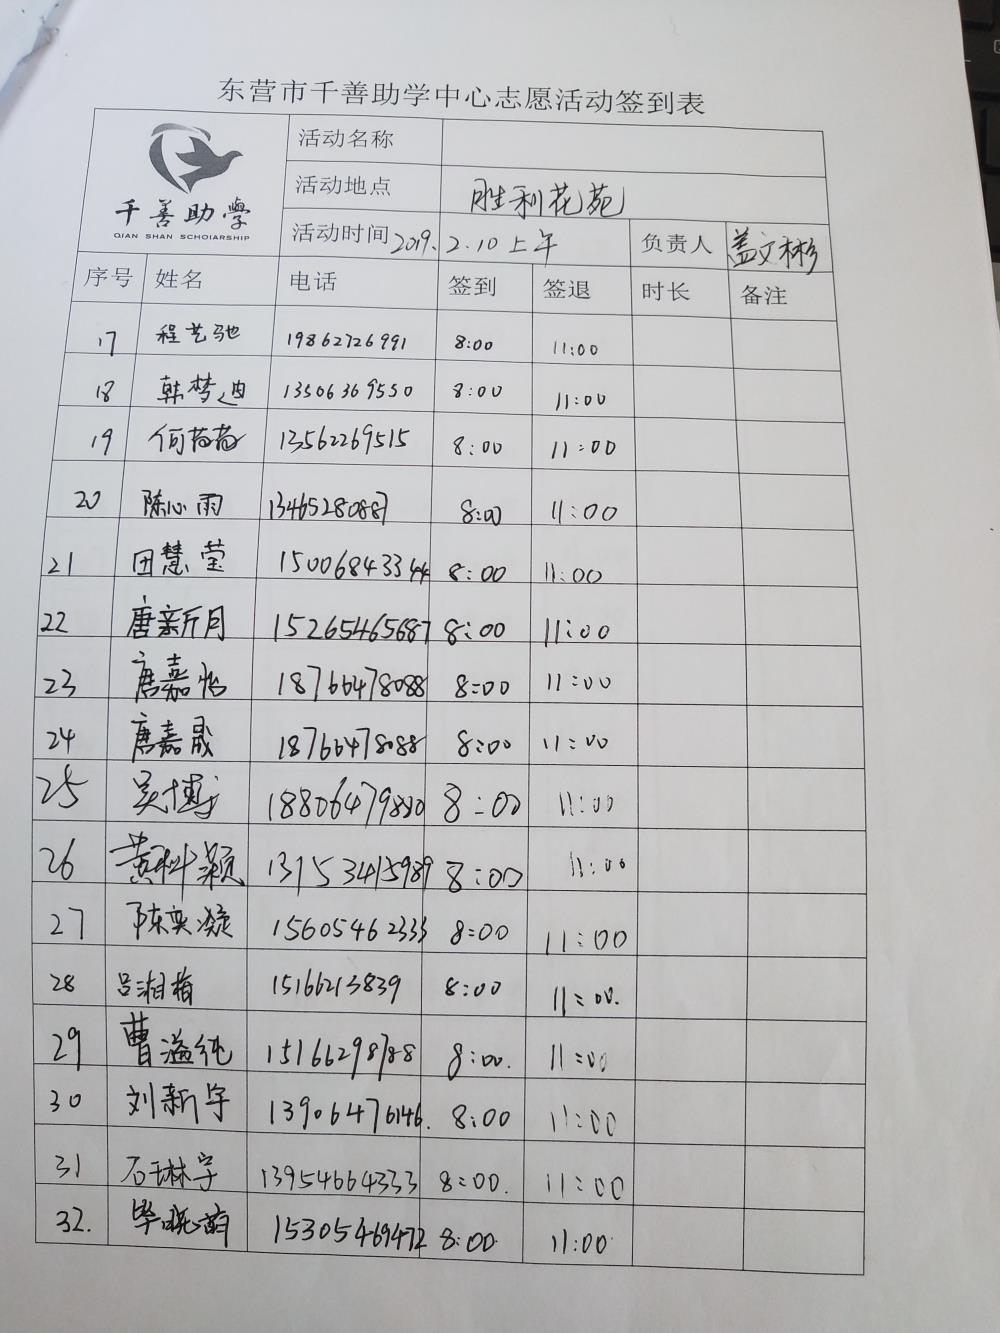 东营市千善助学中心志愿活动签到表
千善助學
QIAN SHAN SCHOIARSHIP
活动名称
活动地点 胜利花苑
活动时间 2019.2.10上午 负责人 盖文彬
序号 姓名 电话 签到 签退 时长 备注
17 程艺驰 19862726991 8:00 11:00
18 韩梦迪 13506369550 8:00 11:00
19 何苒苒 13562269515 8:00 11:00
20 陈心雨 13465280887 8:00 11:00
21 田慧莹 15006843344 8:00 11:00
22 唐新月 15265465687 8:00 11:00
23 唐嘉怡 18766478088 8:00 11:00
24 唐嘉晟 18766478088 8:00 11:00
25 吴博 18806479880 8:00 11:00
26 黄科颖 13153415989 8:00 11:00
27 陈奕凝 15605462333 8:00 11:00
28 吕湘梅 15166213839 8:00 11:00.
29 曹溢纯 15166298788 8:00. 11:00
30 刘新宇 13906476146. 8:00 11:00
31 石琳宇 13954664333 8:00. 11:00
32. 毕晓萌 15305469472 8:00 11:00